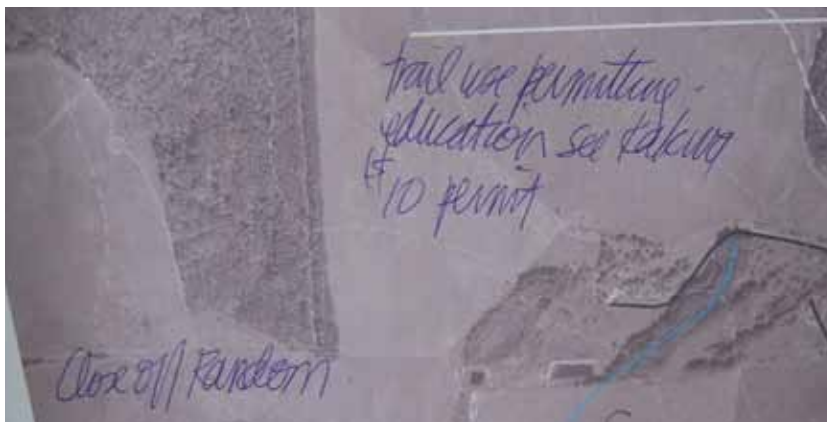 trail use permitting -
education see Kakwa
$10 permit
Close off Random